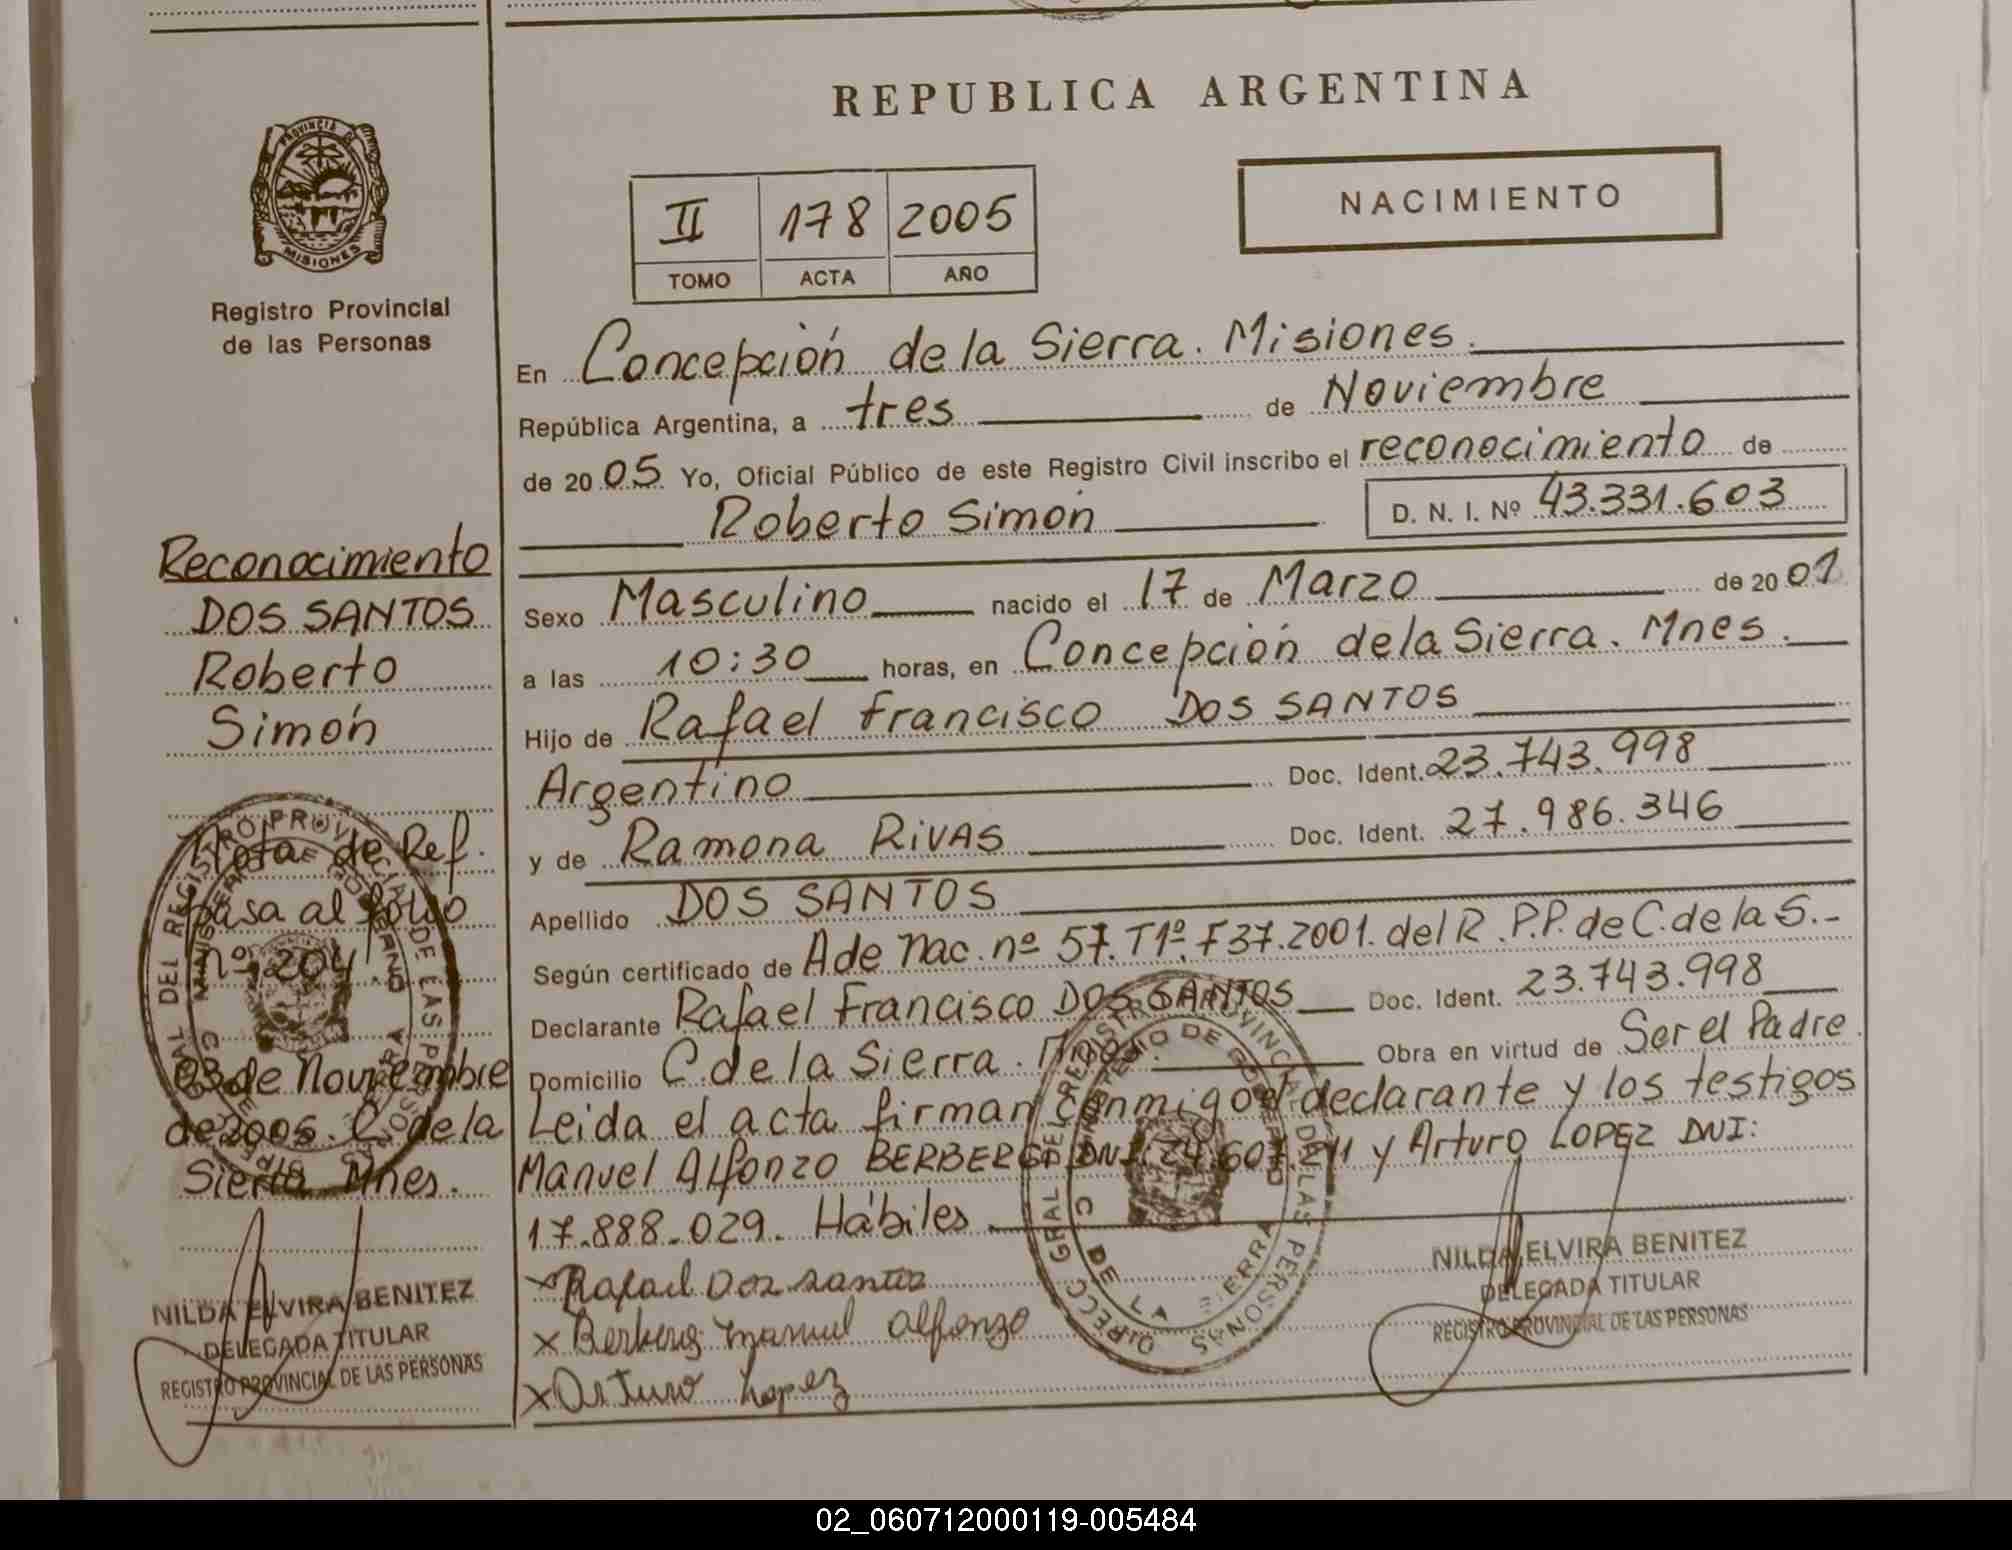 REPUBLICA ARGENTINA
NACIMIENTO
II 178 2005
TOMO ACTA AÑO
PROVINCIA DE MISIONES
Registro Provincial
de las Personas
Reconocimiento
DOS SANTOS
Roberto
Simón
Nota de Ref.
pasa al folio
nº 204
03 de Noviembre
de 2005. C. de la
Sierra Mnes.
NILDA ELVIRA BENITEZ
DELEGADA TITULAR
REGISTRO PROVINCIAL DE LAS PERSONAS
En Concepción de la Sierra. Misiones.
República Argentina, a tres de Noviembre
de 2005 Yo, Oficial Público de este Registro Civil inscribo el reconocimiento de
Roberto Simón D. N. I. Nº 43.331.603
Sexo Masculino nacido el 17 de Marzo de 2001
a las 10:30 horas, en Concepción de la Sierra. Mnes.
Hijo de Rafael Francisco DOS SANTOS
Argentino Doc. Ident. 23.743.998
y de Ramona RIVAS Doc. Ident. 27.986.346
Apellido DOS SANTOS
Según certificado de A de Nac. nº 57. T1º. F37. 2001. del R.P.P. de C. de la S.-
Declarante Rafael Francisco DOS SANTOS Doc. Ident. 23.743.998
Domicilio C. de la Sierra. Mnes. Obra en virtud de Ser el Padre.
Leida el acta firman conmigo el declarante y los testigos
Manuel Alfonzo DNI y Arturo LOPEZ DNI:
17.888.029. Hábiles.
x Rafael Dos santos
x Manuel Alfonzo
x Arturo Lopez
DIRECC GRAL DEL REGISTRO PROVINCIAL DE LAS PERSONAS
MINISTERIO DE GOBIERNO
C DE LA SIERRA
NILDA ELVIRA BENITEZ
DELEGADA TITULAR
REGISTRO PROVINCIAL DE LAS PERSONAS
02_060712000119-005484